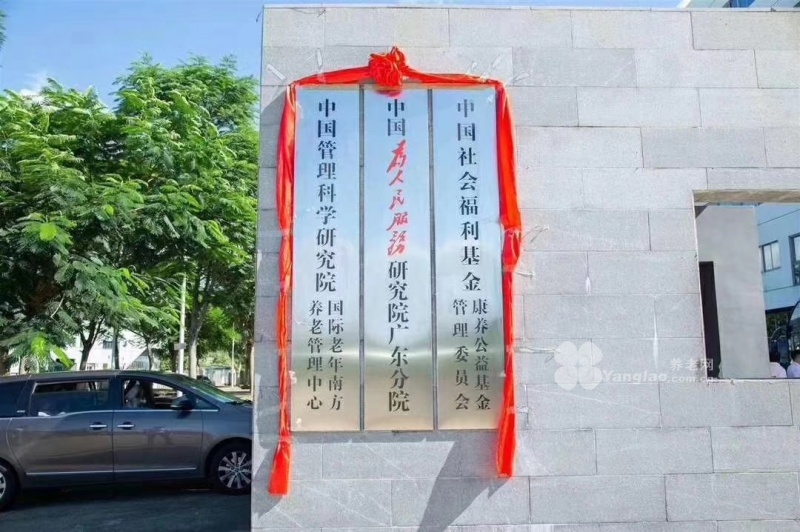 中国管理科学研究院
国际老年南方
养老管理中心
中国为人民服务研究院广东分院
中国社会福利基金
康养公益基金
管理委员会
养老网
Yanglao.com.cn